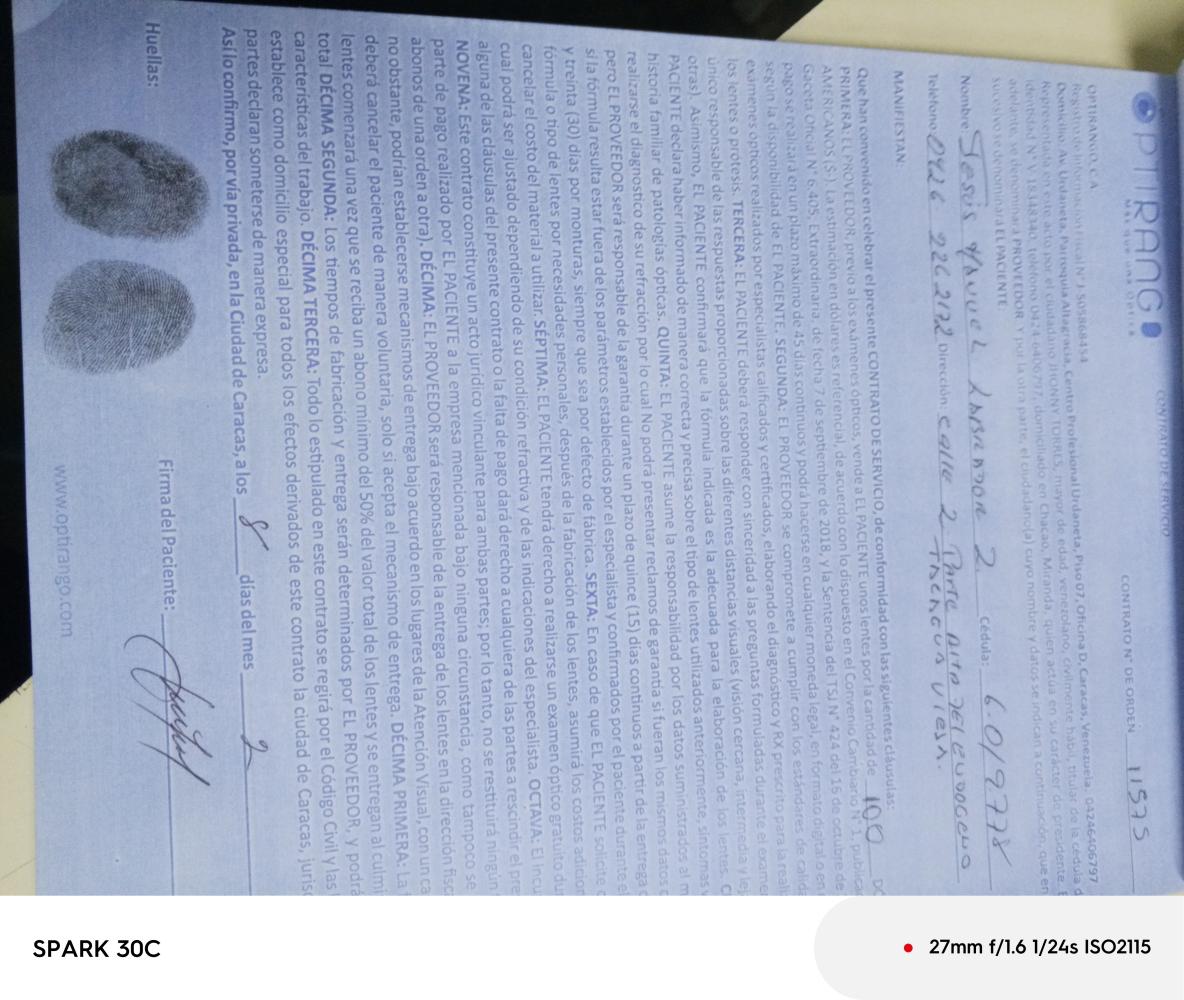 OPTIRANGO
MÁS QUE UNA ÓPTICA
CONTRATO DE SERVICIO
CONTRATO N° DE ORDEN 11575
OPTIRANGO, C.A
Registro de Información Fiscal N° J-505868454
Domicilio: Av. Urdaneta, Parroquia Altagracia, Centro Profesional Urdaneta, Piso 07, Oficina D, Caracas, Venezuela. 04246406797
Representada en este acto por el ciudadano JHONNY TORRES, mayor de edad, venezolano, civilmente hábil, titular de la cédula d
identidad N° teléfono 0424 6406797, domiciliado en Chacao, Miranda, quien actúa en su carácter de presidente. E
adelante, se denominará PROVEEDOR. Y por la otra parte, el ciudadano(a) cuyo nombre y datos se indican a continuación, que en
sucesivo se denominará EL PACIENTE
Nombre: 2 Cédula: 6.019778
Teléfono: 0426 2262172 Dirección calle 2 Parte Alta
MANIFIESTAN:
Que han convenido en celebrar el presente CONTRATO DE SERVICIO, de conformidad con las siguientes cláusulas:
PRIMERA: EL PROVEEDOR, previo a los exámenes ópticos, vende a EL PACIENTE unos lentes por la cantidad de 100
AMERICANOS ($). La estimación en dólares es referencial, de acuerdo con lo dispuesto en el Convenio Cambiario N° 1, publica
Gaceta Oficial N° 6.405, Extraordinaria, de fecha 7 de septiembre de 2018, y la Sentencia del TSJ N° 424 del 16 de octubre de
pago se realizará en un plazo máximo de 45 días continuos y podrá hacerse en cualquier moneda legal, en formato digital o en
según la disponibilidad de EL PACIENTE. SEGUNDA: EL PROVEEDOR se compromete a cumplir con los estándares de calida
exámenes ópticos realizados por especialistas calificados y certificados, elaborando el diagnóstico y RX prescrito para la reali
los lentes o prótesis. TERCERA: EL PACIENTE deberá responder con sinceridad a las preguntas formuladas durante el exame
único responsable de las respuestas proporcionadas sobre las diferentes distancias visuales (visión cercana, intermedia y lej
otras). Asimismo, EL PACIENTE confirmará que la fórmula indicada es la adecuada para la elaboración de los lentes. C
PACIENTE declara haber informado de manera correcta y precisa sobre el tipo de lentes utilizados anteriormente, síntomas v
historia familiar de patologías ópticas. QUINTA: EL PACIENTE asume la responsabilidad por los datos suministrados al m
realizarse el diagnostico de su refracción por lo cual No podrá presentar reclamos de garantía si fueran los mismos datos c
pero EL PROVEEDOR será responsable de la garantía durante un plazo de quince (15) días continuos a partir de la entrega
si la fórmula resulta estar fuera de los parámetros establecidos por el especialista y confirmados por el paciente durante el
y treinta (30) días por monturas, siempre que sea por defecto de fábrica. SEXTA: En caso de que EL PACIENTE solicite
fórmula o tipo de lentes por necesidades personales, después de la fabricación de los lentes, asumirá los costos adicion
cancelar el costo del material a utilizar. SÉPTIMA: EL PACIENTE tendrá derecho a realizarse un examen óptico gratuito du
cual podrá ser ajustado dependiendo de su condición refractiva y de las indicaciones del especialista. OCTAVA: El incu
alguna de las cláusulas del presente contrato o la falta de pago dará derecho a cualquiera de las partes a rescindir el pre
NOVENA: Este contrato constituye un acto jurídico vinculante para ambas partes; por lo tanto, no se restituirá ningún
parte de pago realizado por EL PACIENTE a la empresa mencionada bajo ninguna circunstancia, como tampoco se
abonos de una orden a otra). DÉCIMA: EL PROVEEDOR será responsable de la entrega de los lentes en la dirección fisc
no obstante, podrían establecerse mecanismos de entrega bajo acuerdo en los lugares de la Atención Visual, con un ca
deberá cancelar el paciente de manera voluntaria, solo si acepta el mecanismo de entrega. DÉCIMA PRIMERA: La
lentes comenzará una vez que se reciba un abono mínimo del 50% del valor total de los lentes y se entregan al culmi
total DÉCIMA SEGUNDA: Los tiempos de fabricación y entrega serán determinados por EL PROVEEDOR, y podrá
características del trabajo. DÉCIMA TERCERA: Todo lo estipulado en este contrato se regirá por el Código Civil y las
establece como domicilio especial para todos los efectos derivados de este contrato la ciudad de Caracas, jurisc
partes declaran someterse de manera expresa.
Así lo confirmo, por vía privada, en la Ciudad de Caracas, a los 8 días del mes 2
Huellas:
Firma del Paciente:
www.optirango.com
SPARK 30C
27mm f/1.6 1/24s ISO2115